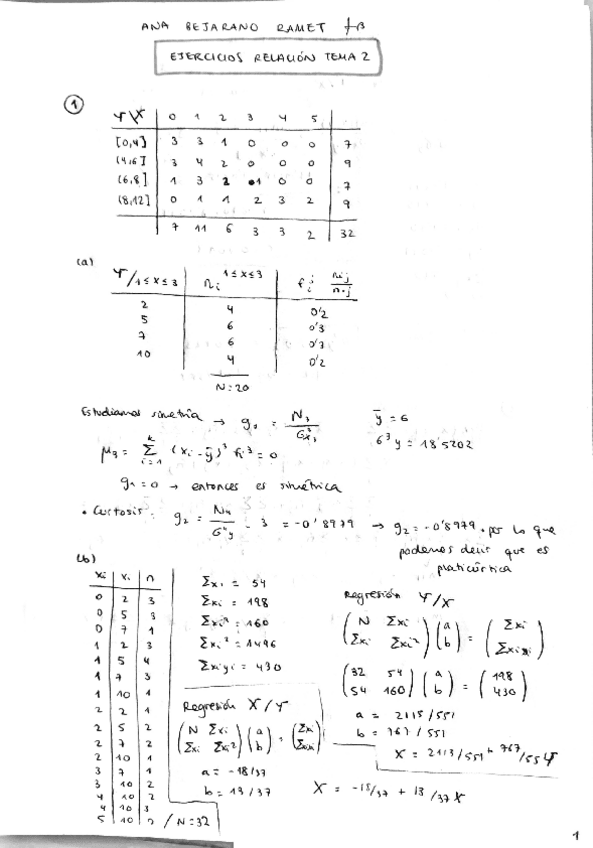 ANA BEJARANO RAMET
EJERCICIOS RELACIÓN TEMA 2
1
Y\X 0 1 2 3 4 5
[0,4] 3 3 1 0 0 0 7
(4,6] 3 4 2 0 0 0 9
(6,8] 1 3 2 1 0 0 7
(8,12] 0 1 1 2 3 2 9
7 11 6 3 3 2 32
(a)
Y/1≤x≤3 ni 1≤x≤3 fi j nij/n.j
2 4 0'2
5 6 0'3
7 6 0'3
10 4 0'2
N=20
Estudiamos simetría → g1 = ȳ = 6
μ3 = Σ (xi - ȳ)³ fi = 0 6³y = 18'5202
g1 = 0 → entonces es simétrica
• Curtosis: g2 = - 3 = -0'8979 → g2 = -0'8979 . por lo que
podemos decir que es
platicúrtica
(b)
xi yi n
0 2 3
0 5 3
0 7 1
1 2 3
1 5 4
1 7 3
1 10 1
2 2 1
2 5 2
2 7 2
2 10 1
3 7 1
3 10 2
4 10 3
5 10 2 / N=32
Σxi = 54
Σxi = 198
Σxi² = 160
Σxi² = 1496
Σxiyi = 430
Regresión X/Y
(N Σxi) (a) = (Σxi)
(Σxi Σxi²) (b) (Σxiyi)
a = -18/37
b = 13/37
Regresión Y/X
(N Σxi) (a) = (Σxi)
(Σxi Σxi²) (b) (Σxiyi)
(32 54) (a) = (198)
(54 160) (b) (430)
a = 2115/551
b = 767/551
X = 2113/551 + 767/551 Y
X = -15/37 + 13/37 X
1